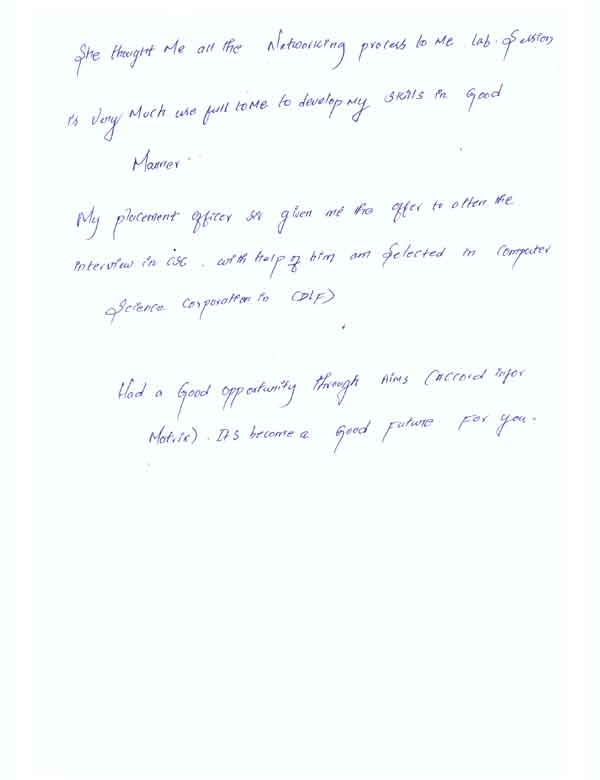 She thought Me all the Networking process to me. Lab. Session
is Very Much use full to Me to develop My skills in Good
Manner.
My placement officer sir given me the offer to atten the
interview in CSC. with help of him am Selected in Computer
Science Corporation in (DLF)
Had a Good opportunity through Aims (Accord infor
Matrix). It's become a Good Future For you.